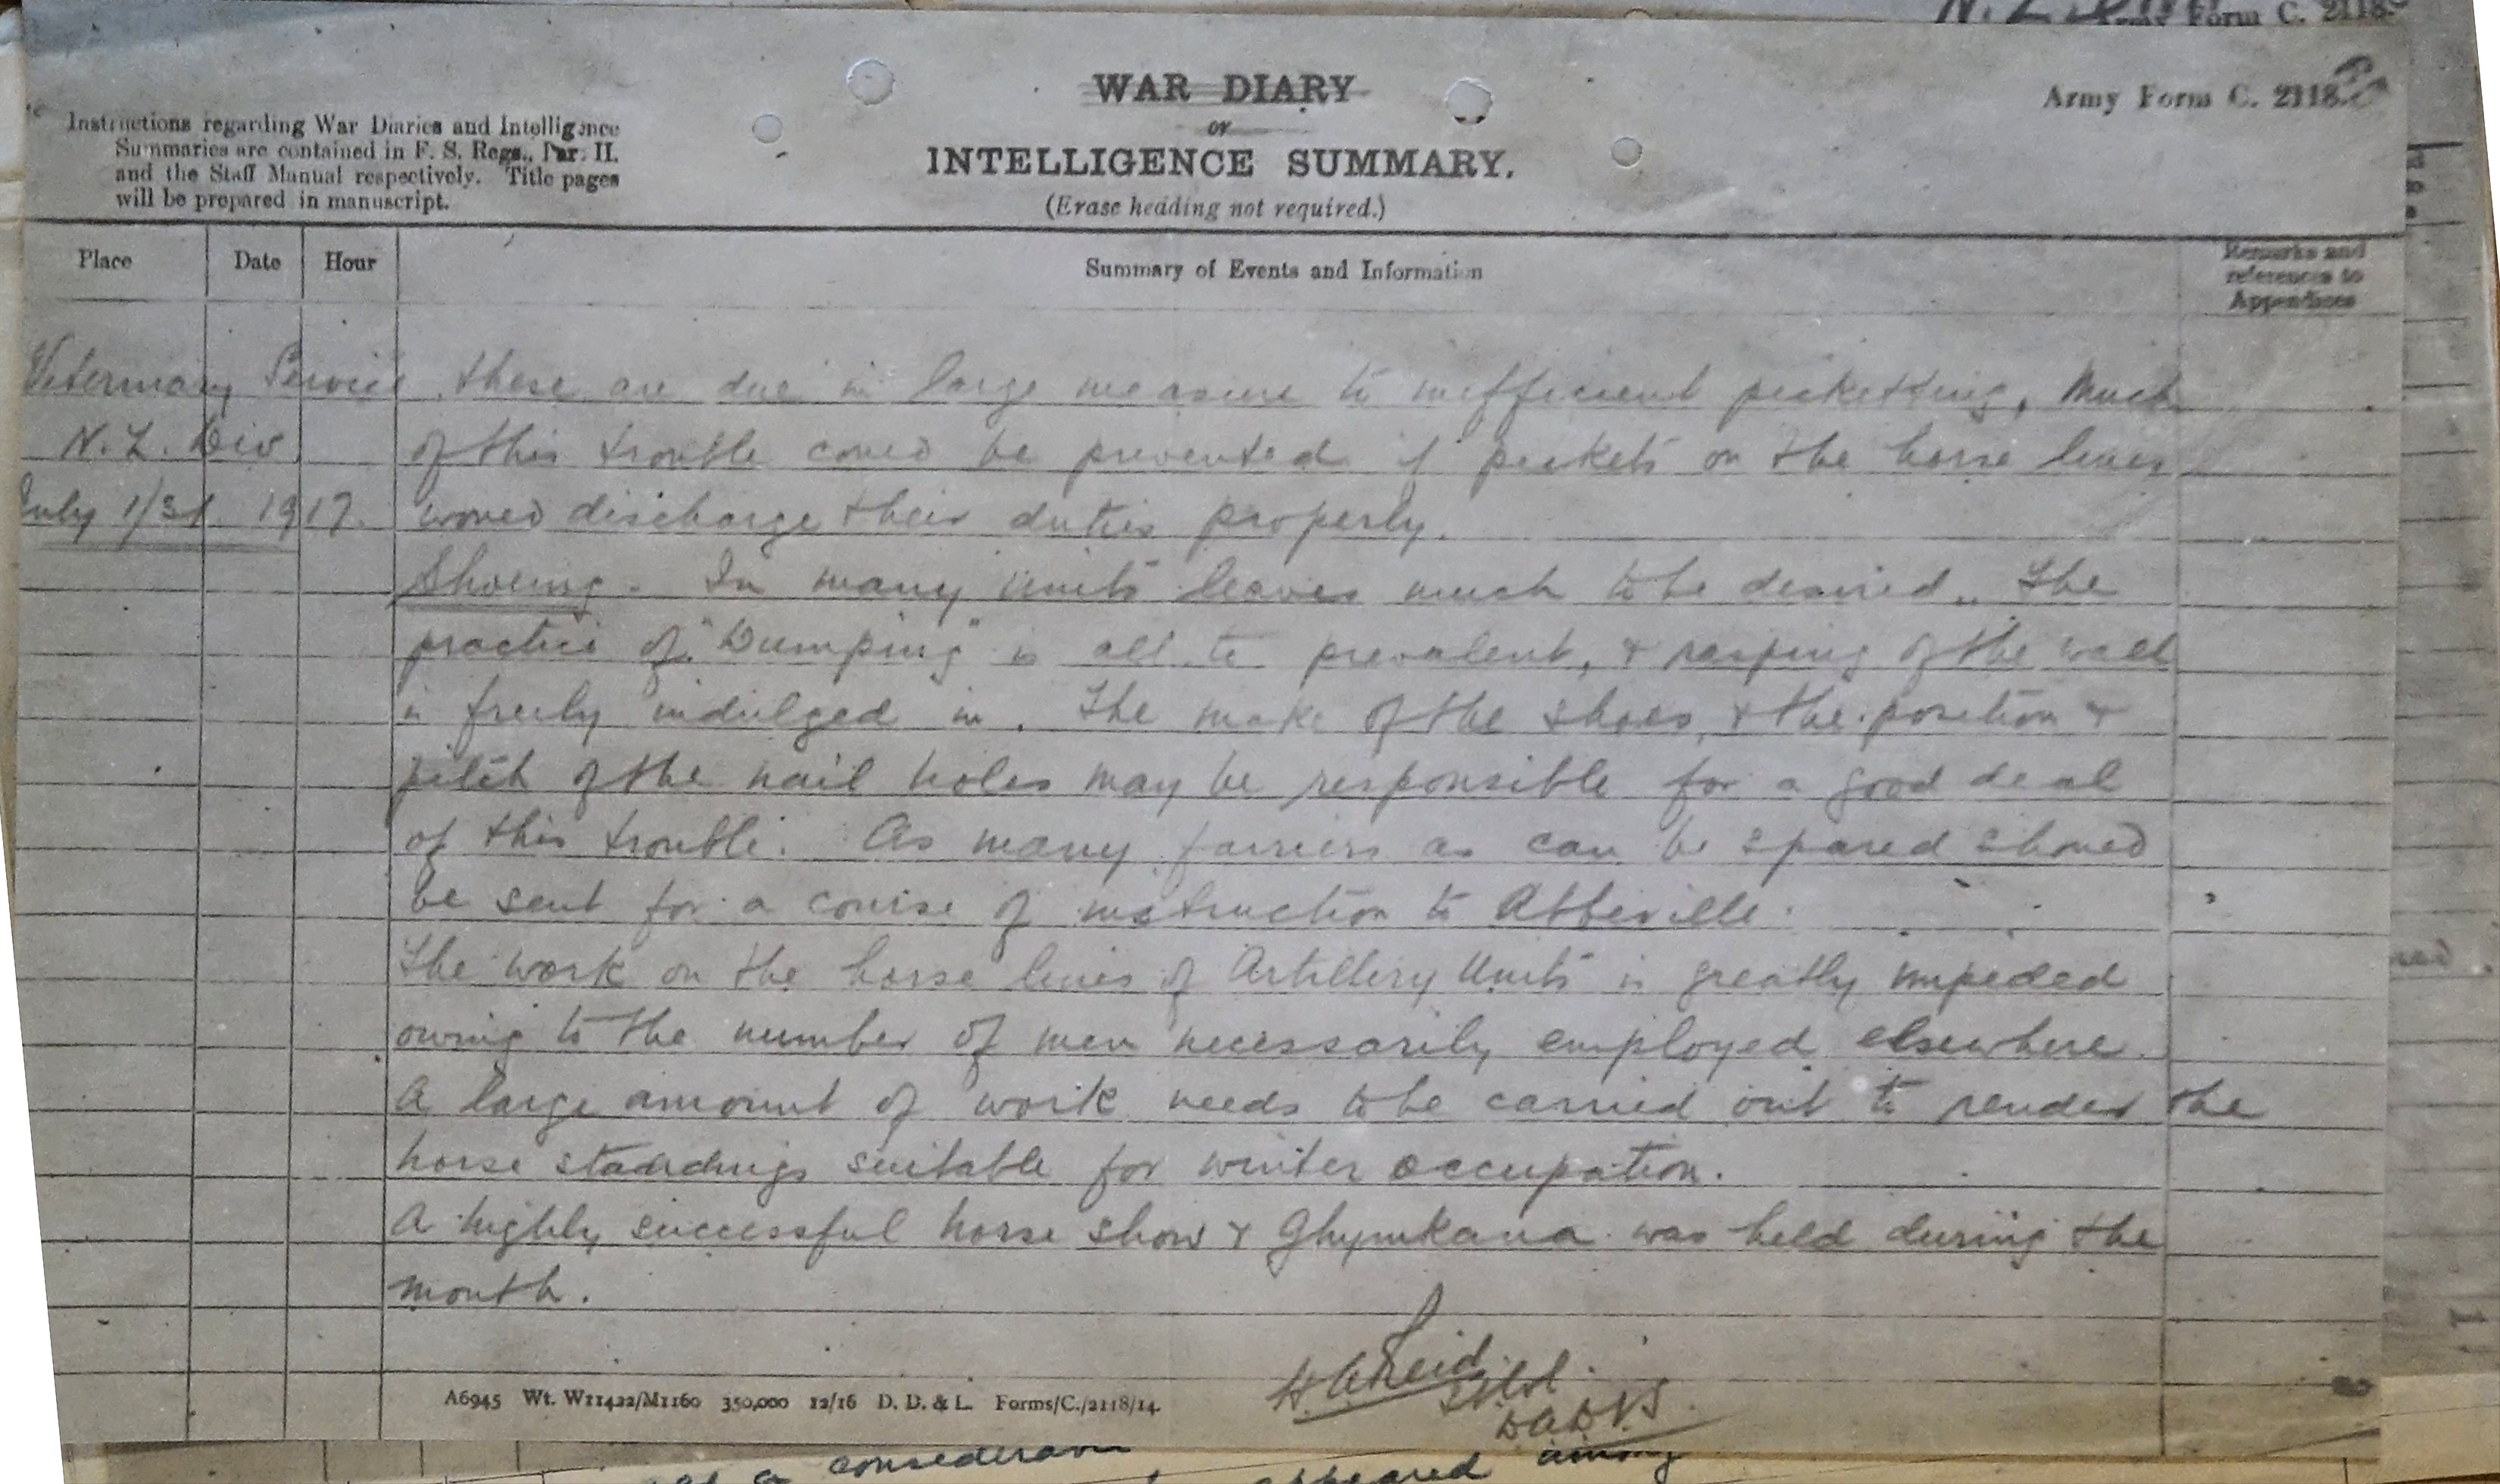 Army Form C. 2118.
WAR DIARY
or
INTELLIGENCE SUMMARY.
(Erase heading not required.)
Army Form C. 2118.
Instructions regarding War Diaries and Intelligence
Summaries are contained in F. S. Regs., Part II.
and the Staff Manual respectively. Title pages
will be prepared in manuscript.
Place Date Hour Summary of Events and Information Remarks and
references to
Appendices
Veterinary Service
N.Z. Div
July 1/31 1917.
these are due in large measure to inefficient picketting, Much
of this trouble could be prevented if pickets on the horse lines
would discharge their duties properly.
Shoeing. In many units leaves much to be desired. The
practice of "Dumping" is all to prevalent, & rasping of the wall
is freely indulged in. The make of the shoes, & the position &
pitch of the nail holes may be responsible for a good deal
of this trouble. As many farriers as can be spared should
be sent for a course of instruction to Abbeville.
The work on the horse lines of Artillery Units is greatly impeded
owing to the number of men necessarily employed elsewhere.
A large amount of work needs to be carried out to render the
horse standings suitable for winter occupation.
A highly successful horse show & Ghymkana was held during the
month.
H.A. Reid
DADVS
A6945 Wt. W11422/M1160 350,000 12/16 D. D. & L. Forms/C./2118/14.
appeared among